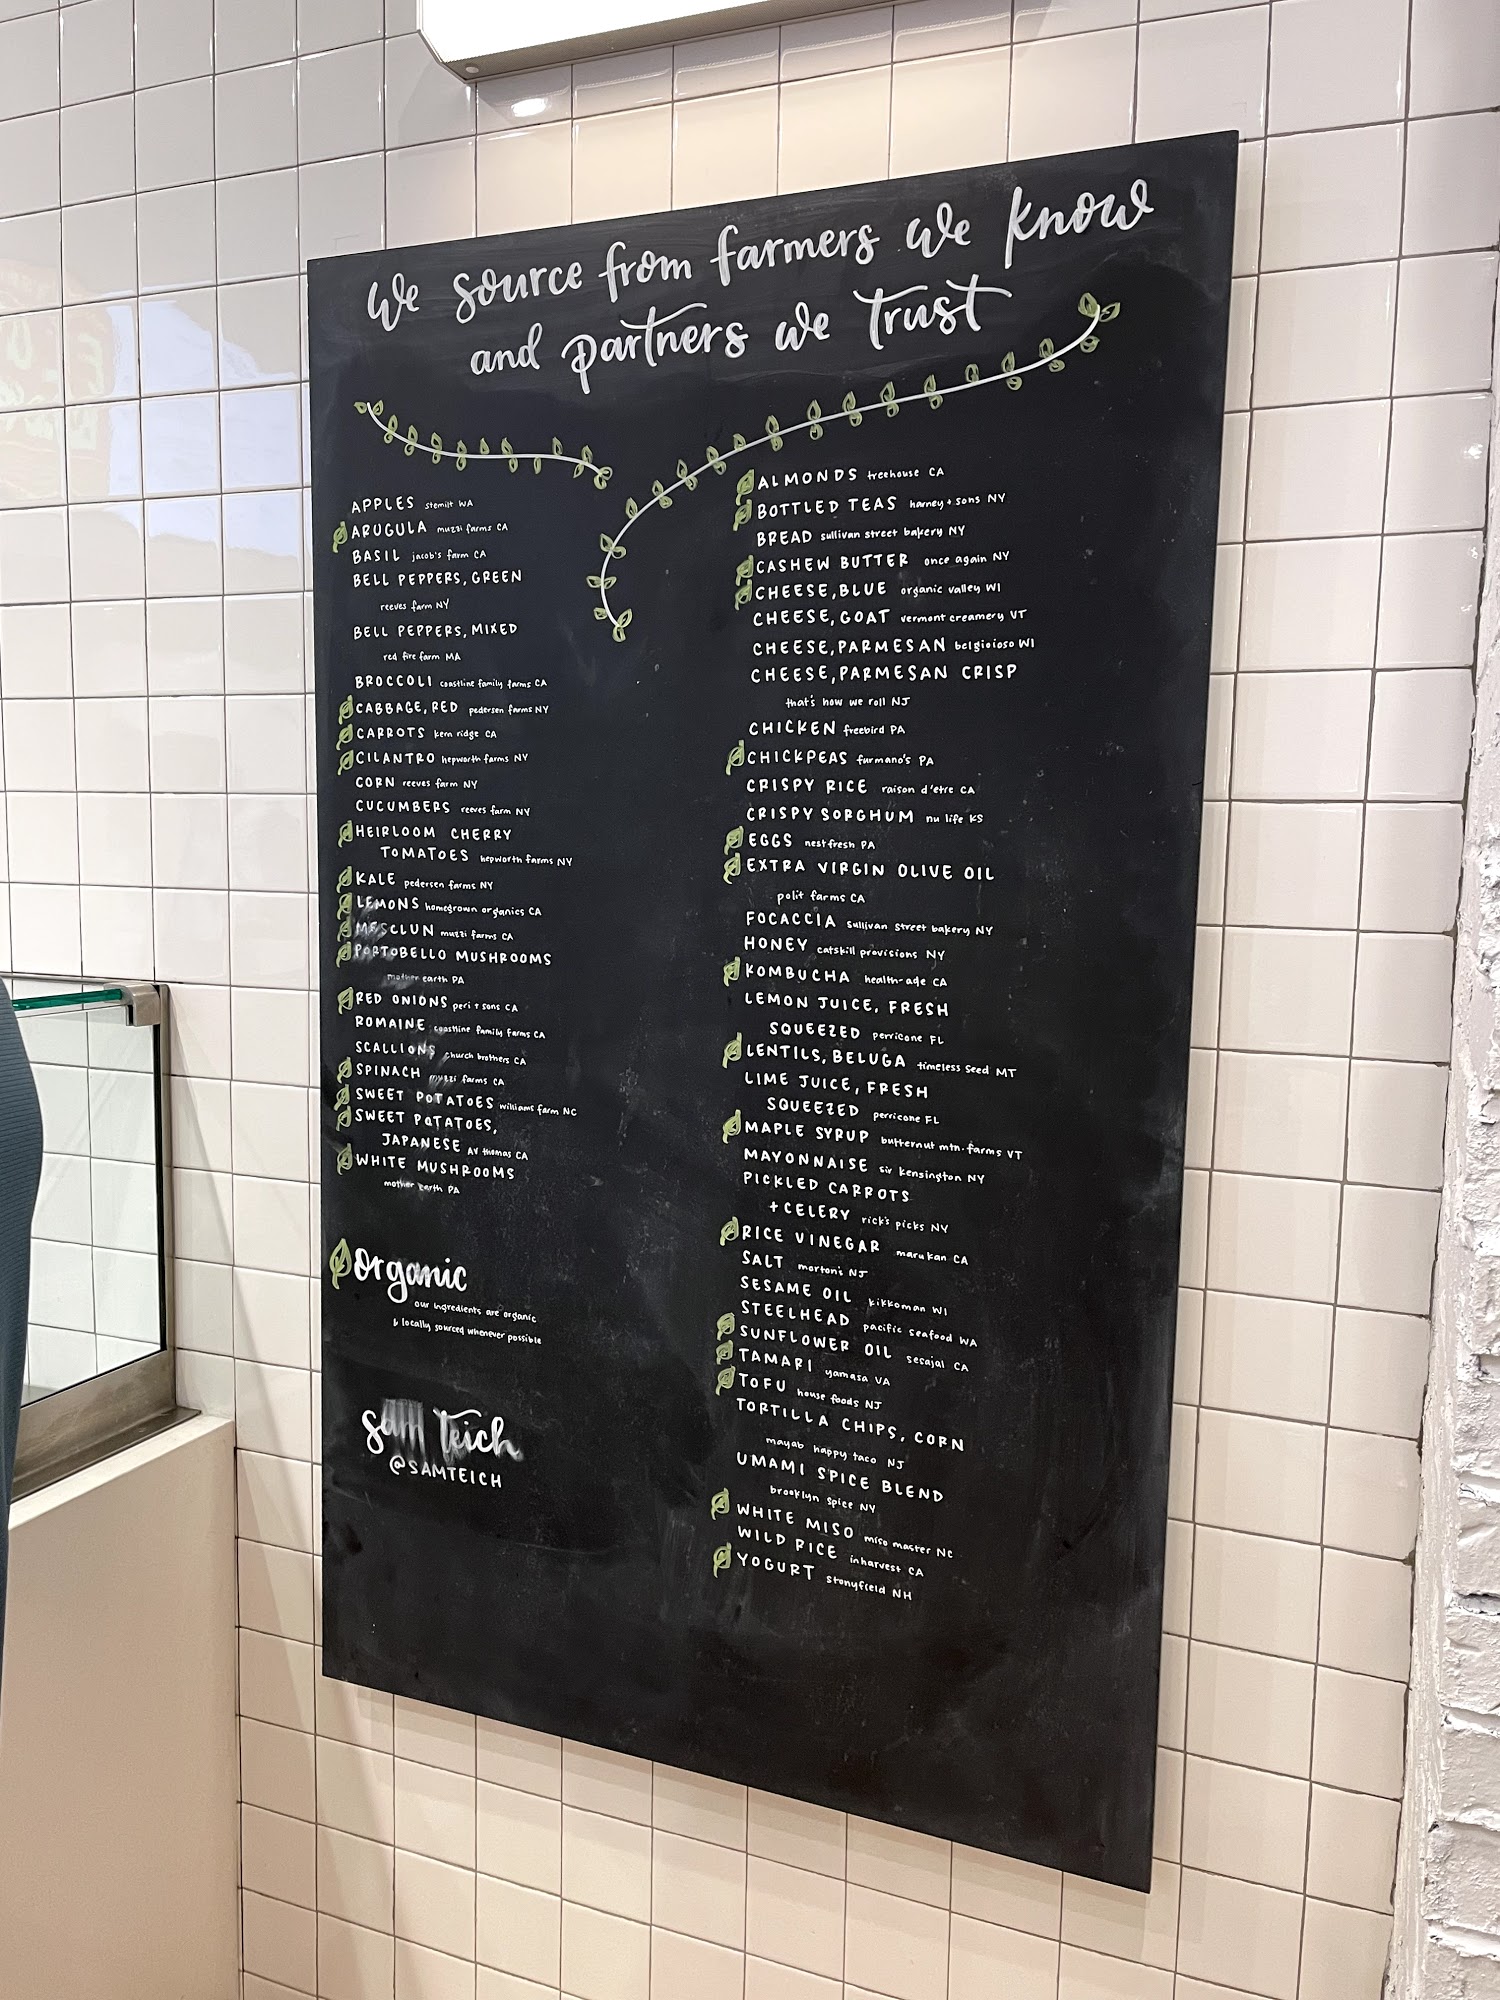 We source from farmers we know
and partners we trust
APPLES stemilt WA
ARUGULA muzzi farms CA
BASIL jacob's farm CA
BELL PEPPERS, GREEN
reeves farm NY
BELL PEPPERS, MIXED
red fire farm MA
BROCCOLI coastline family farms CA
CABBAGE, RED pedersen farms NY
CARROTS kern ridge CA
CILANTRO hepworth farms NY
CORN reeves farm NY
CUCUMBERS reeves farm NY
HEIRLOOM CHERRY
TOMATOES hepworth farms NY
KALE pedersen farms NY
LEMONS homegrown organics CA
MESCLUN muzzi farms CA
PORTOBELLO MUSHROOMS
mother earth PA
RED ONIONS peri + sons CA
ROMAINE coastline family farms CA
SCALLIONS church brothers CA
SPINACH muzzi farms CA
SWEET POTATOES williams farm NC
SWEET POTATOES,
JAPANESE AV thomas CA
WHITE MUSHROOMS
mother earth PA
organic
our ingredients are organic
& locally sourced whenever possible
sam teich
@SAMTEICH
ALMONDS treehouse CA
BOTTLED TEAS harney + sons NY
BREAD sullivan street bakery NY
CASHEW BUTTER once again NY
CHEESE, BLUE organic valley WI
CHEESE, GOAT vermont creamery VT
CHEESE, PARMESAN belgioioso WI
CHEESE, PARMESAN CRISP
that's how we roll NJ
CHICKEN freebird PA
CHICKPEAS furmano's PA
CRISPY RICE raison d'etre CA
CRISPY SORGHUM nu life KS
EGGS nestfresh PA
EXTRA VIRGIN OLIVE OIL
polit farms CA
FOCACCIA sullivan street bakery NY
HONEY catskill provisions NY
KOMBUCHA health-ade CA
LEMON JUICE, FRESH
SQUEEZED perricone FL
LENTILS, BELUGA timeless seed MT
LIME JUICE, FRESH
SQUEEZED perricone FL
MAPLE SYRUP butternut mtn. farms VT
MAYONNAISE sir kensington NY
PICKLED CARROTS
+ CELERY rick's picks NY
RICE VINEGAR marukan CA
SALT morton's NJ
SESAME OIL kikkoman WI
STEELHEAD pacific seafood WA
SUNFLOWER OIL sesajal CA
TAMARI yamasa VA
TOFU house foods NJ
TORTILLA CHIPS, CORN
mayab happy taco NJ
UMAMI SPICE BLEND
brooklyn spice NY
WHITE MISO miso master NC
WILD RICE inharvest CA
YOGURT stonyfield NH